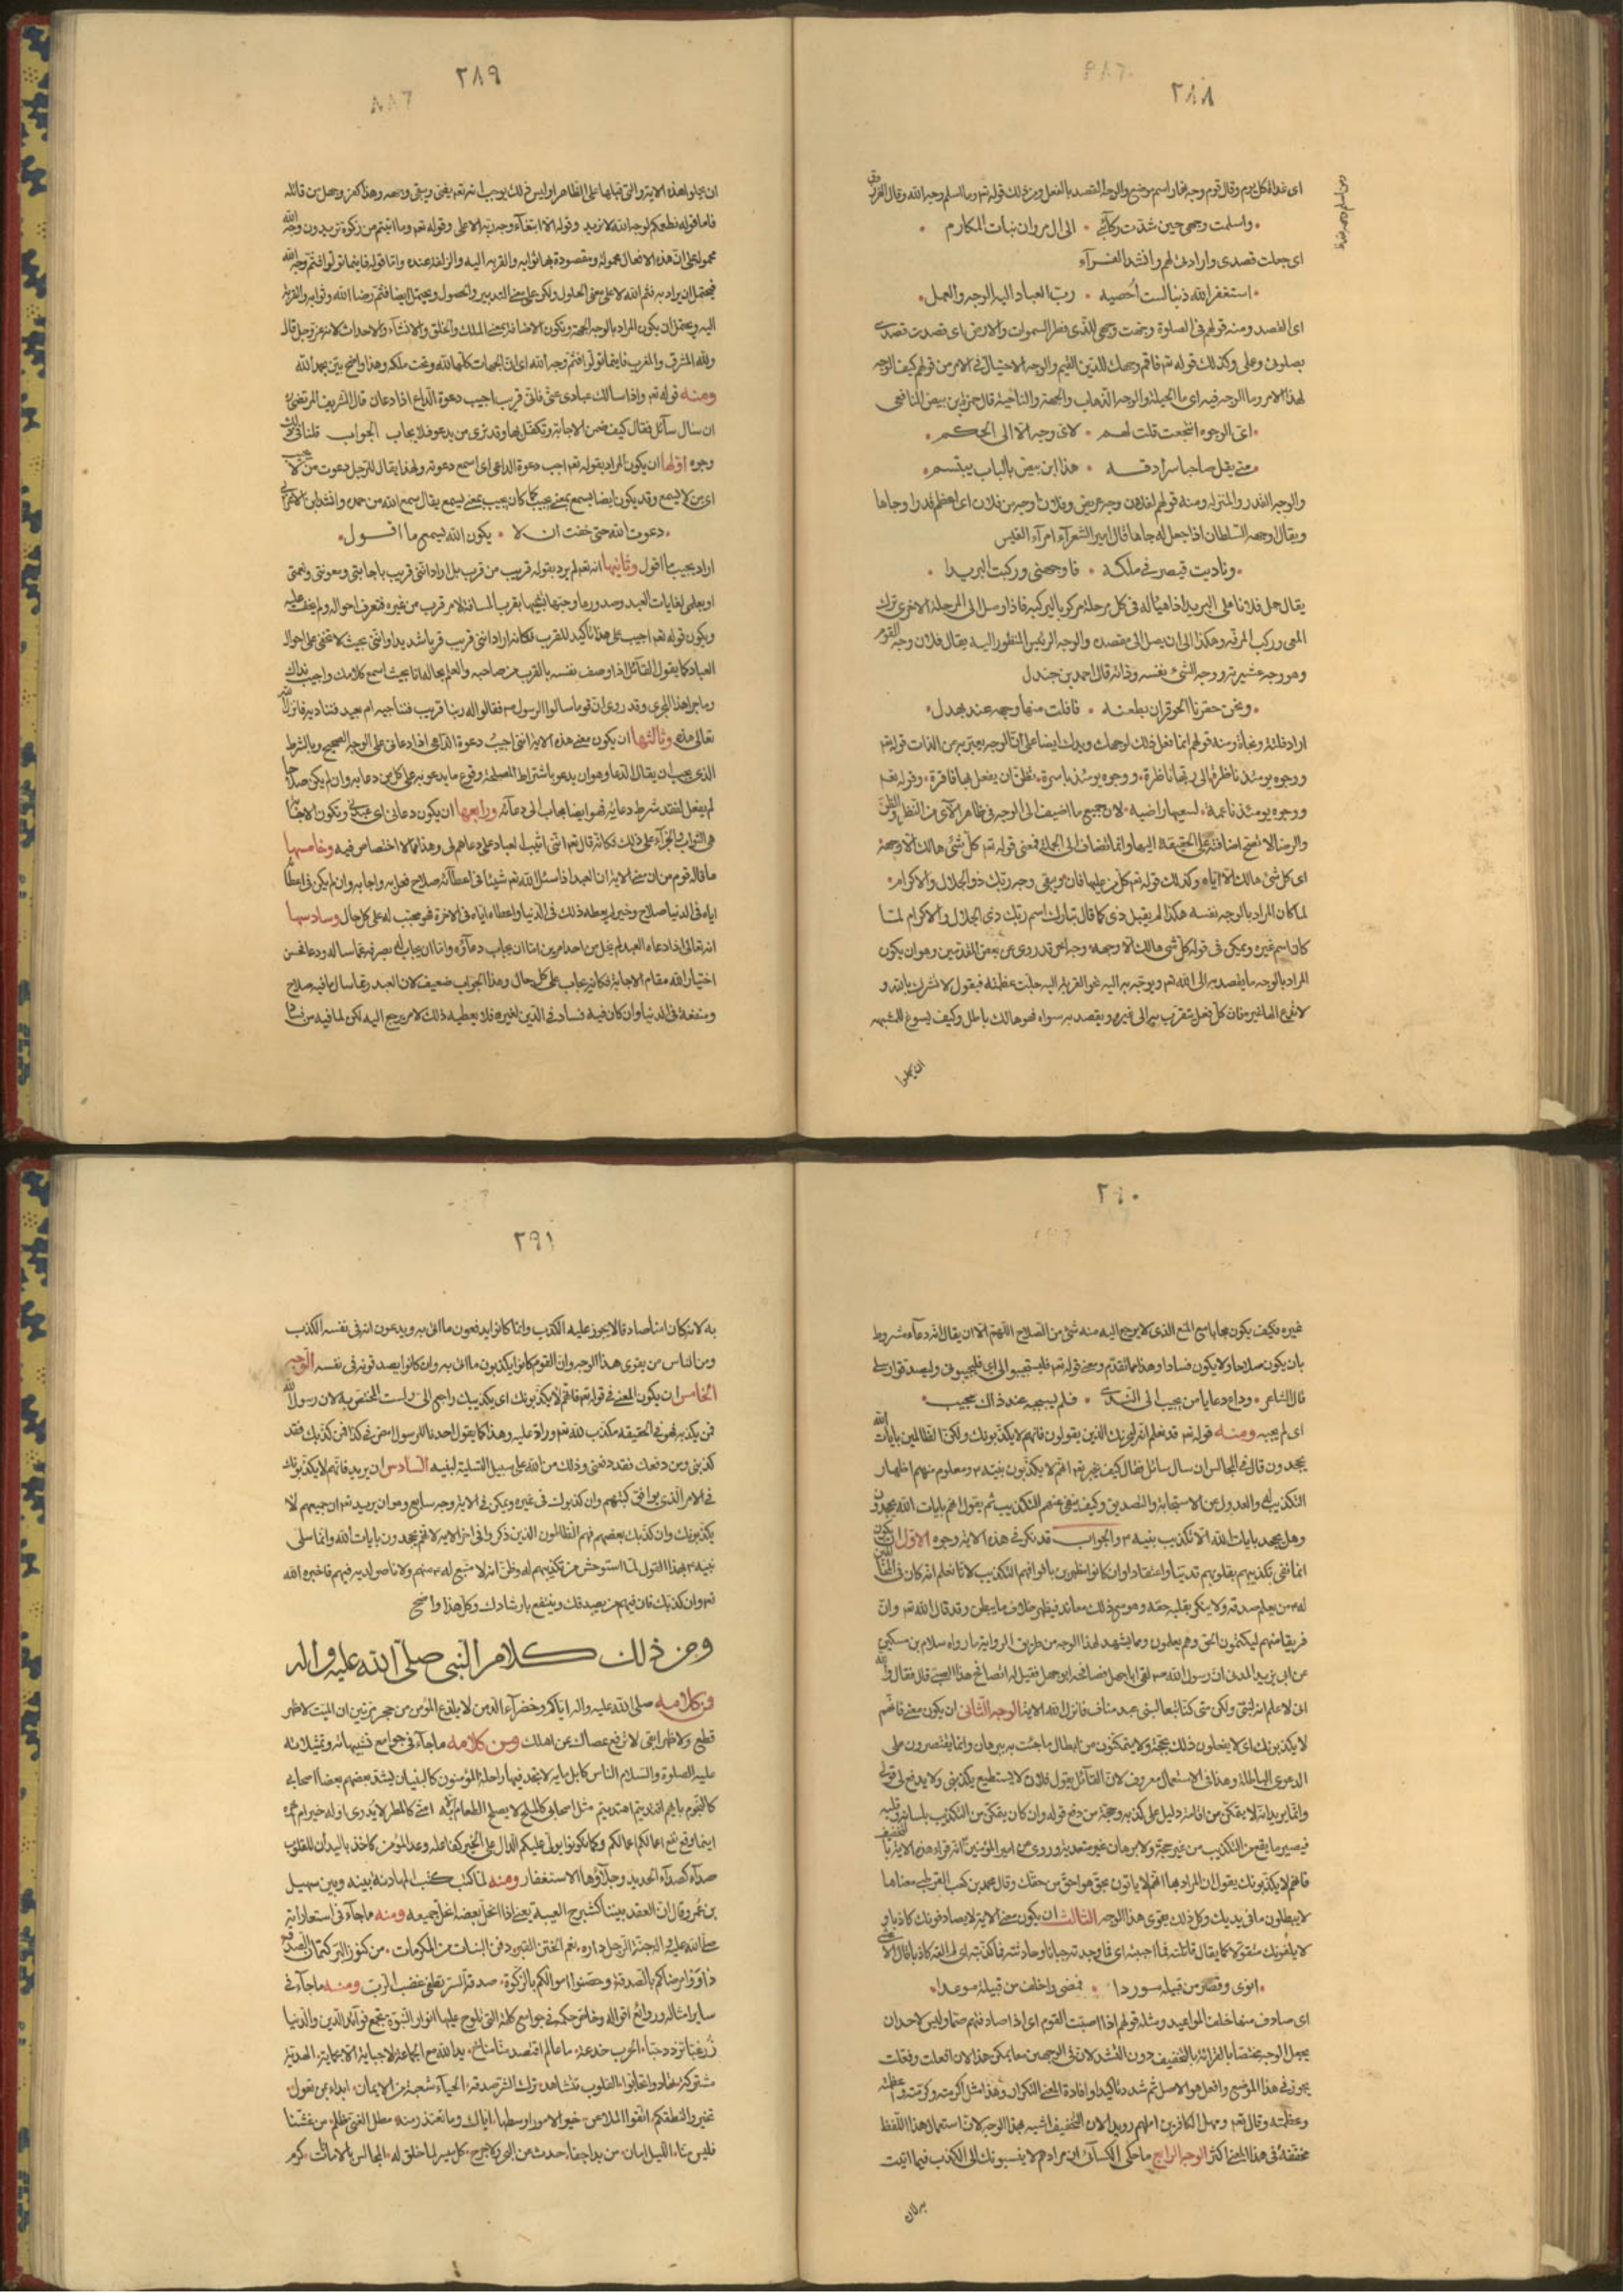 ٢٨٨
اى غداة كل يوم وقال قوم وجه نهار اسم موضع والوجه القصد بالفعل ومن ذلك قوله تع ومن اسلم وجهه لله وقال الفرزدق
واسلمت وجهى حين شدت ركائبى ٠ الى ال مروان بناة المكارم
اى جعلت قصدى وارادتى لهم وانشد الفرآء
استغفر الله ذنبا لست احصيه ٠ رب العباد اليه الوجه والعمل
اى القصد ومنه قولهم فى الصلوة وجهت وجهى للذى فطر السموات والارض اى قصدت قصدى
بصلوتى وعملى وكذلك قوله تع فاقم وجهك للدين القيم والوجه الاحتيال فى الامر من قولهم كيف الوجه
لهذا الامر وما الوجه فيه اى ما الحيلة والوجه الذهاب والجهة والناحية قال حمزة بن بيض الحنفى
اى الوجوه انتجعت قلت لهم ٠ لاى وجه الا الى الحكم
متى يقل صاحبا سرادقه ٠ هذا ابن بيض بالباب يبتسم
والوجه القدر والمنزلة ومنه قولهم لفلان وجه عريض وفلان اوجه من فلان اى اعظم قدرا وجاها
ويقال اوجهه السلطان اذا جعل له جاها قال امير الشعرآء امرء القيس
ونادمت قيصر فى ملكه ٠ فاوجهنى وركبت البريدا
يقال حمل فلانا على البريد اذا هيأ له فى كل مرحلة مركوبا ليركبه فاذا وصل الى المرحلة الاخرى ترك
المعى وركب المرفه وهكذا الى ان يصل الى مقصده والوجه الرئيس المنظور اليه يقال فلان وجه القوم
وهو وجه عشيرته ووجه الشئ نفسه وذاته قال احمد بن جندل
ونحن حفزنا الحوفزان بطعنه ٠ فافلت منها وجهه عتد نهد
اراد فلته ونجاه ومنه قولهم انما نفعل ذلك لوجهك ويدلك ايضا على ان الوجه يعبر به عن الذات قوله تع
ووجوه يومئذ ناظرة الى ربها ناظرة ووجوه يومئذ باسرة تظن ان يفعل بها فاقرة وقوله تع
ووجوه يومئذ ناعمة لسعيها راضيه لان جميع ما اضيف الى الوجه فى ظاهر الآى من النظر والظن
والرضا لا تصح اضافته على الحقيقة اليها وانما تضاف الى الجملة فمعنى قوله تع كل شئ هالك الا وجهه
اى كل شئ هالك الا اياه وكذلك قوله تع كل من عليها فان ويبقى وجه ربك ذو الجلال والاكرام
لما كان المراد بالوجه نفسه هكذا لم يقل ذى كما قال تبارك اسم ربك ذى الجلال والاكرام لما
كان اسم غيره ويمكن فى قوله كل شئ هالك الا وجهه وجه اخر قد روى عن بعض المتقدمين وهو ان يكون
المراد بالوجه ما يقصد به الى الله تع ويوجه به اليه نحو القربة اليه جلت عظمته فيقول لا تشرك بالله و
لا تدع الها غيره فان كل فعل تتقرب به الى غيره ويقصد به سواه فهو هالك باطل وكيف يسوغ للمشبهه
ان يحملوا
٢٨٩
ان يحملوا هذه الاية والتى قبلها على الظاهر اوليس ذلك يوجب انه تع يفنى ويبقى وجهه وهذا كفر وجهل من قائله
فاما قوله نطعمكم لوجه الله لا نريد وقوله الا ابتغآء وجه ربه الاعلى وقوله تع وما اتيتم من زكوة تريدون وجه الله
محمول على ان هذه الافعال مفعولة ومقصودة بها ثوابه والقربه اليه والزلفة عنده واما قوله فاينما تولوا فثم وجه الله
فيحتمل ان يراد به فثم الله لا على معنى الحلول ولكن على معنى التدبير والحصول ويحتمل ايضا فثم رضا الله وثوابه والقربة
اليه ويحتمل ان يكون المراد بالوجه الجهة وتكون الاضافة بمعنى الملك والخلق والانشآء والاحداث لانه عز وجل قال
ولله المشرق والمغرب فاينما تولوا فثم وجه الله اى ان الجهات كلها لله وتحت ملكه وهذا واضح بين بحمد الله
ومنه قوله تع واذا سالك عبادى عنى فانى قريب اجيب دعوة الداع اذا دعان قال الشريف المرتضى
ان سال سآئل فقال كيف ضمن الاجابة وتكفل بها وقد نرى من يدعو فلا يجاب الجواب قلنا فى ذلك
وجوه اولها ان يكون المراد بقوله تع اجيب دعوة الداعى اى اسمع دعوته ولهذا يقال للرجل دعوت من لا يجيب
اى من لا يسمع وقد يكون ايضا يسمع بمعنى يجيب كما كان يجيب بمعنى يسمع يقال سمع الله من حمده وانشد ابن الاعرابى
دعوت الله حتى خفت ان لا ٠ يكون الله يسمع ما اقول
اراد يجيب ما اقول وثانيها انه تع لم يرد بقوله قريب من قرب بل اراد انى قريب باجابتى ومعونتى ونعمتى
ويكون قوله تع اجيب على هذا تأكيد للقرب فكانه اراد اننى قريب قربا شديدا واننى بحيث لا تخفى على احوال
العباد كما يقول القآئل اذا وصف نفسه بالقرب من صاحبه والعلم بحاله انا بحيث اسمع كلامك واجيب نداك
وما جرا هذا المجرى وقد روى ان قوما سالوا الرسول ص فقالوا له ربنا قريب فنناجيه ام بعيد فنناديه فانزل الله
تعالى هذه وثالثها ان يكون معنى هذه الاية اننى اجيب دعوة الداعى اذا دعانى على الوجه الصحيح وبالشرط
الذى يجب ان يقال الدعا وهو ان يدعو باشتراط المصلحة وقوع ما يدعو به على كل من دعا به وان لم يكن صلاحا
لم يفعل لفقد شرط دعائه فهو ايضا مجاب الى دعآئه ورابعها ان يكون دعانى اى عبدنى وتكون الاجابة
هى الثواب والجزآء على ذلك فكانه قال تع اننى اثيب العباد على دعاهم لى وهذا مما لا اختصاص فيه وخامسها
ما قاله قوم من ان معنى الاية ان العبد اذا سئل الله تع شيئا فى اعطآئه صلاح فعل به واجابه وان لم يكن فى اعطآئه
اياه فى الدنيا صلاح وخير لم يعطه ذلك فى الدنيا واعطاه اياه فى الاخرة فهو مجيب له على كل حال وسادسها
انه تعالى اذا دعاه العبد لم يخل من احد امرين اما ان يجاب دعآؤه واما ان يجاب له بصرفه عما ساله ودعا فحسن
اختيار الله مقام الاجابة فكانه يجاب على كل حال وهذا الجواب ضعيف لان العبد ربما سال ما فيه صلاح
ومنفعة فى الدنيا وان كان فيه فساد فى الدين لغيره فلا يعطيه ذلك لامر يرجع اليه لكن لما فيه من فساد
٢٩٠
غيره فكيف يكون مجابا مع المنع الذى لا يرجع اليه منه شئ من الصلاح اللهم الا ان يقال انه دعآء مشروط
بان يكون صلاحا ولا يكون فسادا وهذا مما تقدم ومعنى قوله تع فليستجيبوا لى اى فليجيبونى وليصدقوا رسلى
قال الشاعر ٠ وداع دعا يا من يجيب الى الندى ٠ فلم يستجبه عند ذاك مجيب
اى لم يجبه ومنه قوله تع قد نعلم انه ليحزنك الذين يقولون فانهم لا يكذبونك ولكن الظالمين بايات الله
يجحدون قال فى المجالس ان سال سائل فقال كيف يخبر تع انهم لا يكذبون نبيه ص ومعلوم منهم اظهار
التكذيب له والعدول عن الاستجابة والتصديق وكيف ينفى عنهم التكذيب ثم يقول انهم بايات الله يجحدون
وهل يجحد بايات الله الا تكذيب نبيه ص والجواب قد ذكر فى هذه الاية وجوه الاول ان يكون
انما نفى تكذيبهم بقلوبهم تدينا واعتقادا وان كانوا يظهرون بافواههم التكذيب لانا نعلم انه كان فى المخالفين
له ص من يعلم صدقه ولا ينكر بقلبه حقه وهو مع ذلك معاند فيظهر خلاف ما يبطن وقد قال الله تع وان
فريقا منهم ليكتمون الحق وهم يعلمون ومما يشهد لهذا الوجه من طريق الرواية ما رواه سلام بن مسكين
عن ابى يزيد المدنى ان رسول الله ص لقى ابا جهل فصافحه ابو جهل فقيل له اتصافح هذا الصبى قال فقال والله
انى لاعلم انه لنبى ولكن متى كنا تبعا لبنى عبد مناف فانزل الله الاية الوجه الثانى ان يكون معنى فانهم
لا يكذبونك اى لا يفعلون ذلك بحجة ولا يتمكنون من ابطال ما جئت به ببرهان وانما يقتصرون على
الدعوى الباطلة وهذا فى الاستعمال معروف لان القآئل يقول فلان لا يستطيع يكذبنى ولا يدفع لى قولى
وانما يريد انه لا يتمكن من اقامة دليل على كذبه وحجة من دفع قوله وان كان يتمكن من التكذيب بلسانه وقلبه
فيصير ما يقع من التكذيب من غير حجة ولا برهان غير معتد به وروى عن امير المؤمنين انه قراء هذه الاية بالتخفيف
فانهم لا يكذبونك يقول ان المراد بها انهم لا ياتون بحق هو احق من حقك وقال محمد بن كعب القرظى معناها
لا يبطلون ما فى يديك وكل ذلك يقوى هذا الوجه الثالث ان يكون معنى الاية لا يصادفونك كاذبا و
لا يلفونك متقولا كما يقال قاتلته فما اجبنته اى فما وجدته جبانا وحادثته فما اكذبته اى لم القه كاذبا قال الاعشى
اثوى وقصر من قيله سوردا ٠ فمضى واخلف من قبيلة موعدا
اى صادف منها خلف المواعيد ومثله قولهم اذا اصممت القوم اى اذا صادفتهم صما وليس لاحد ان
يجعل الوجه مختصا بالقراءة بالتخفيف دون التشديد لان فى الوجهين معا يمكن هذا لان افعلت وفعلت
يجوز فى هذا الموضع وافعل هو الاصل ثم شدد تاكيدا وافادة لمعنى التكرار وهذا مثل اكرمته وكرمته واعظمته
وعظمته وقال تع ومهل الكافرين امهلهم رويدا الا ان التخفيف اشبه بهذا الوجه لان استعمال هذا اللفظ
مخففة فى هذا المعنى اكثر الوجه الرابع ما حكى الكسآئى ان مرادهم لا ينسبونك الى الكذب فيما اتيت
به لان
٢٩١
به لانه كان امينا صادقا لا يجوز عليه الكذب وانما كانوا يدفعون ما اتى به ويدعون انه فى نفسه الكذب
ومن الناس من يقوى هذا الوجه وان القوم كانوا يكذبون ما اتى به وان كانوا يصدقونه فى نفسه الوجه
الخامس ان يكون المعنى فى قوله تع فانهم لا يكذبونك اى تكذيبك راجع الى ولست المختص به لان رسول الله
فمن يكذبه فهو فى الحقيقة مكذب لله تع وراد عليه وهذا كما يقول احدنا للرسول امض فى كذا فمن كذبك فقد
كذبنى ومن دفعك فقد دفعنى وذلك من الله على سبيل التسلية لنبيه السادس ان يريد فانهم لا يكذبونك
فى الامر الذى يوافق كتبهم وان كذبوك فى غيره ويمكن فى الاية وجه سابع وهو ان يريد تع ان جميعهم لا
يكذبونك وان كذبك بعضهم فهم الظالمون الذين ذكروا فى اخر الاية لانهم يجحدون بايات الله وانما سلى
نبيه ص بهذا القول لما استوحش من تكذيبهم له وظن انه لا متبع له ص منهم ولا ناصر لديه فيهم فاخبره الله
تع وان كذبك فان فيهم من يصدقك وينتفع بارشادك وكل هذا واضح
ومن ذلك كلام النبى صلى الله عليه واله
فمن كلامه صلى الله عليه واله اياكم وخضرآء الدمن لا يلدغ المؤمن من جحر مرتين ان المنبت لا ظهر
قطع ولا ظهرا ابقى لا ترفع عصاك عن اهلك ومن كلامه ما جآء فى جوامع تشبيهاته وتمثيلاته
عليه الصلوة والسلام الناس كابل ماية لا تجد فيها راحلة المؤمنون كالبنيان يشد بعضهم بعضا اصحابى
كالنجوم بايهم اقتديتم اهتديتم مثل اصحابى كالملح لا يصلح الطعام الا به امتى كالمطر لا يدرى اوله خير ام اخره
اينما وقع نفع اعمالكم عمالكم وكما تكونوا يولى عليكم الدال على الخير كفاعله وعد المؤمن كاخذ باليد ان للقلوب
صدآء كصدآء الحديد وجلآؤها الاستغفار ومنه لما كتب كتب المهادنة بينه وبين سهيل
بن عمرو قال ان العقد بيننا كشرج العيبة يعنى اذا انحل بعضه انحل جميعه ومنه ما جآء فى استعاراته
صلى الله عليه واله جنة الرجل داره نعم الختن القبر دفن البنات من المكرمات من كنوز البر كتمان الصدقة
داووا مرضاكم بالصدقة وحصنوا اموالكم بالزكوة صدقة السر تطفى غضب الرب ومنه ما جآء فى
ساير امثاله وروائع اقواله وخاص حكمه فى جوامع كلمه التى تلوح عليها انوار النبوة تجمع فوآئد الدين والدنيا
زر غبا تزدد حبا الحرب خدعة ما عال من اقتصد يد الله مع الجماعة الهدية
مشتركة تهادوا تحابوا القلوب تتشاهد ترك الشر صدقة الحيآء شعبة من الايمان ابداء بمن تعول
تخيروا لنطفكم اتقوا الملاعن خير الامور اوسطها اياك وما تعتذر منه مطل الغنى ظلم من غشنا
فليس منا من بدا جفا حدث عن البحر ولا حرج كل ميسر لما خلق له المجالس بالامانات كرم